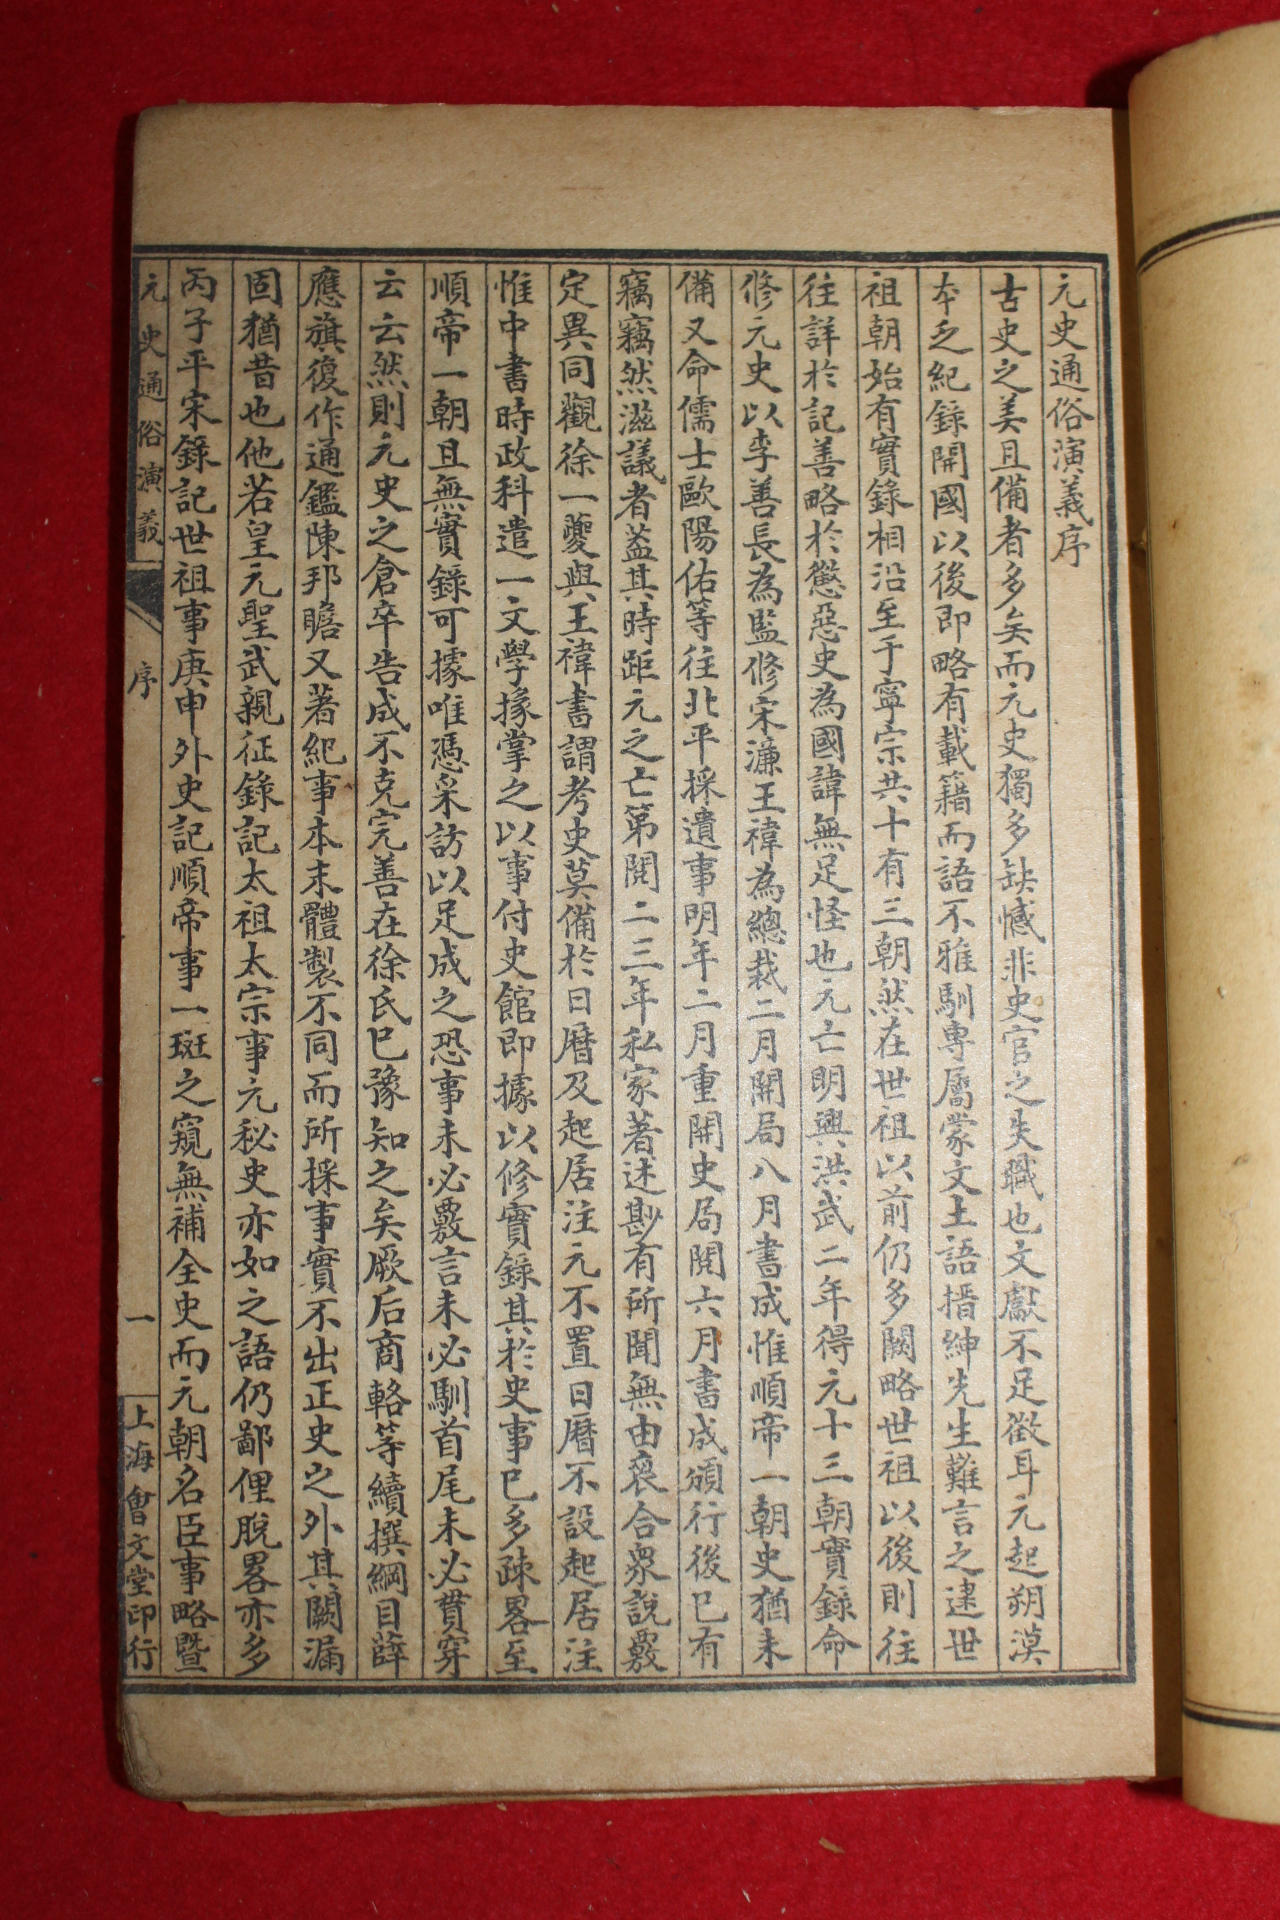 元史通俗演義序
古史之美且備者多矣而元史獨多缺憾非史官之失職也文獻不足徵耳元起朔漠
本乏紀錄開國以後即略有載籍而語不雅馴專屬蒙文土語搢紳先生難言之逮世
祖朝始有實錄相沿至于寧宗共十有三朝然在世祖以前仍多闕略世祖以後則往
往詳於記善略於懲惡史為國諱無足怪也元亡明興洪武二年得元十三朝實錄命
修元史以李善長為監修宋濂王禕為總裁二月開局八月書成惟順帝一朝史猶未
備又命儒士歐陽佑等往北平採遺事明年二月重開史局閱六月書成頒行後已有
竊竊然滋議者蓋其時距元之亡第閱二三年私家著述尠有所聞無由裒合衆說覈
定異同觀徐一夔與王禕書謂考史莫備於日曆及起居注元不置日曆不設起居注
惟中書時政科遣一文學掾掌之以事付史館即據以修實錄其於史事已多疎畧至
順帝一朝且無實錄可據唯憑采訪以足成之恐事未必覈言未必馴首尾未必貫穿
云云然則元史之倉卒告成不克完善在徐氏已豫知之矣厥后商輅等續撰綱目薛
應旗復作通鑑陳邦瞻又著紀事本末體製不同而所採事實不出正史之外其闕漏
固猶昔也他若皇元聖武親征錄記太祖太宗事元秘史亦如之語仍鄙俚脫畧亦多
丙子平宋錄記世祖事庚申外史記順帝事一斑之窺無補全史而元朝名臣事略暨
元史通俗演義
序
一
上海會文堂印行